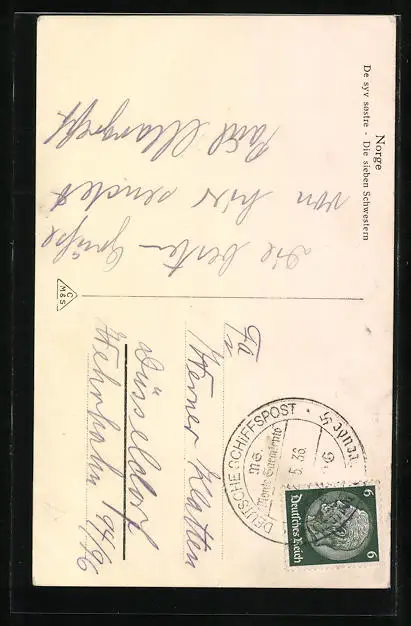 Norge
De syv søstre - Die sieben Schwestern
Die besten Grüße
von hier sendet
Paul
C
M&S
Fa
Werner Klatten
Düsseldorf
Wehrhahn 94/96
DEUTSCHE SCHIFFSPOST
MS.
Monte Sarmiento
5.36.
6 6
Deutsches Reich